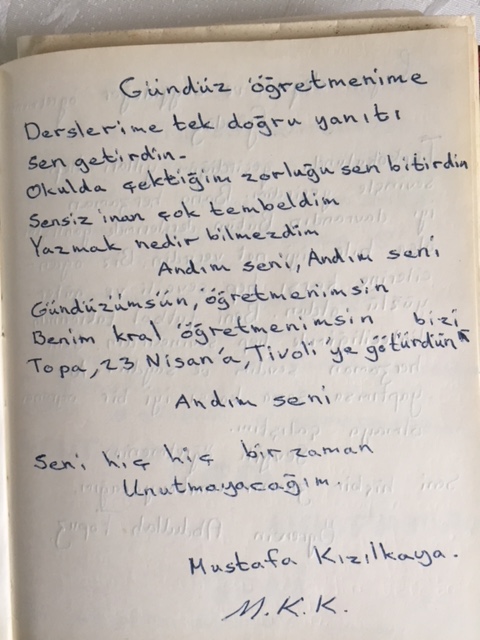 Gündüz öğretmenime
Derslerime tek doğru yanıtı
sen getirdin.
Okulda çektiğim zorluğu sen bitirdin
Sensiz inan çok tembeldim
Yazmak nedir bilmezdim
Andım seni, Andım seni
Gündüzümsün, öğretmenimsin
Benim kral öğretmenimsin bizi
Topa, 23 Nisan'a, Tivoli'ye götürdün
Andım seni
Seni hiç hiç bir zaman
Unutmayacağım.
Mustafa Kızılkaya.
M.K.K.